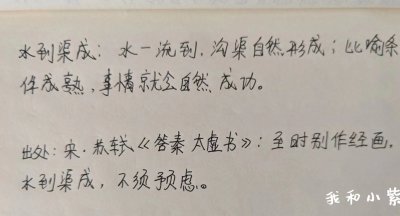 水到渠成：水一流到，沟渠自然形成；比喻条
件成熟，事情就会自然成功。
出处：宋·苏轼《答秦太虚书》：至时别作经画，
水到渠成，不须预虑。
我和小紫